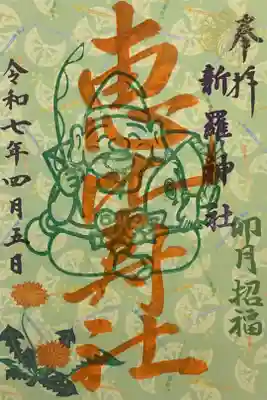 奉拝
新羅神社
卯月招福
恵比寿社
令和七年四月五日